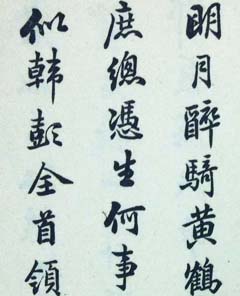 明月醉騎黄鶴
庶總憑生何事
似韩彭全首領